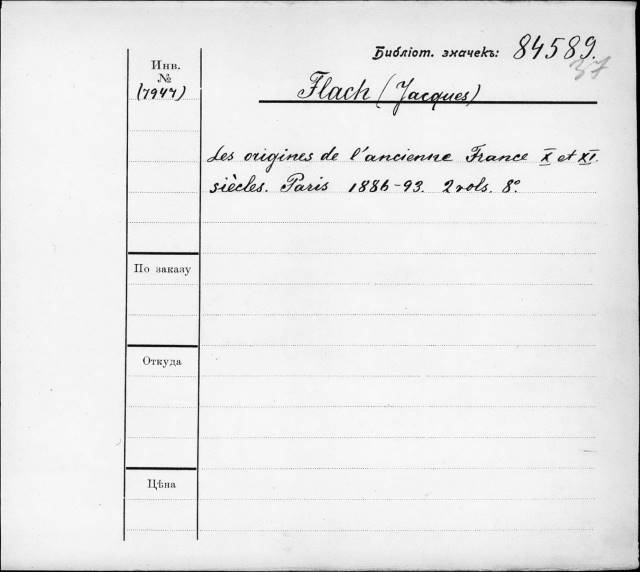 Библіот. значекъ: 84589.
37
Инв.
№
(7947)
Flach (Jacques)
Les origines de l'ancienne France X et XI.
siècles. Paris 1886-93. 2 vols. 8º.
По заказу
Откуда
Цѣна